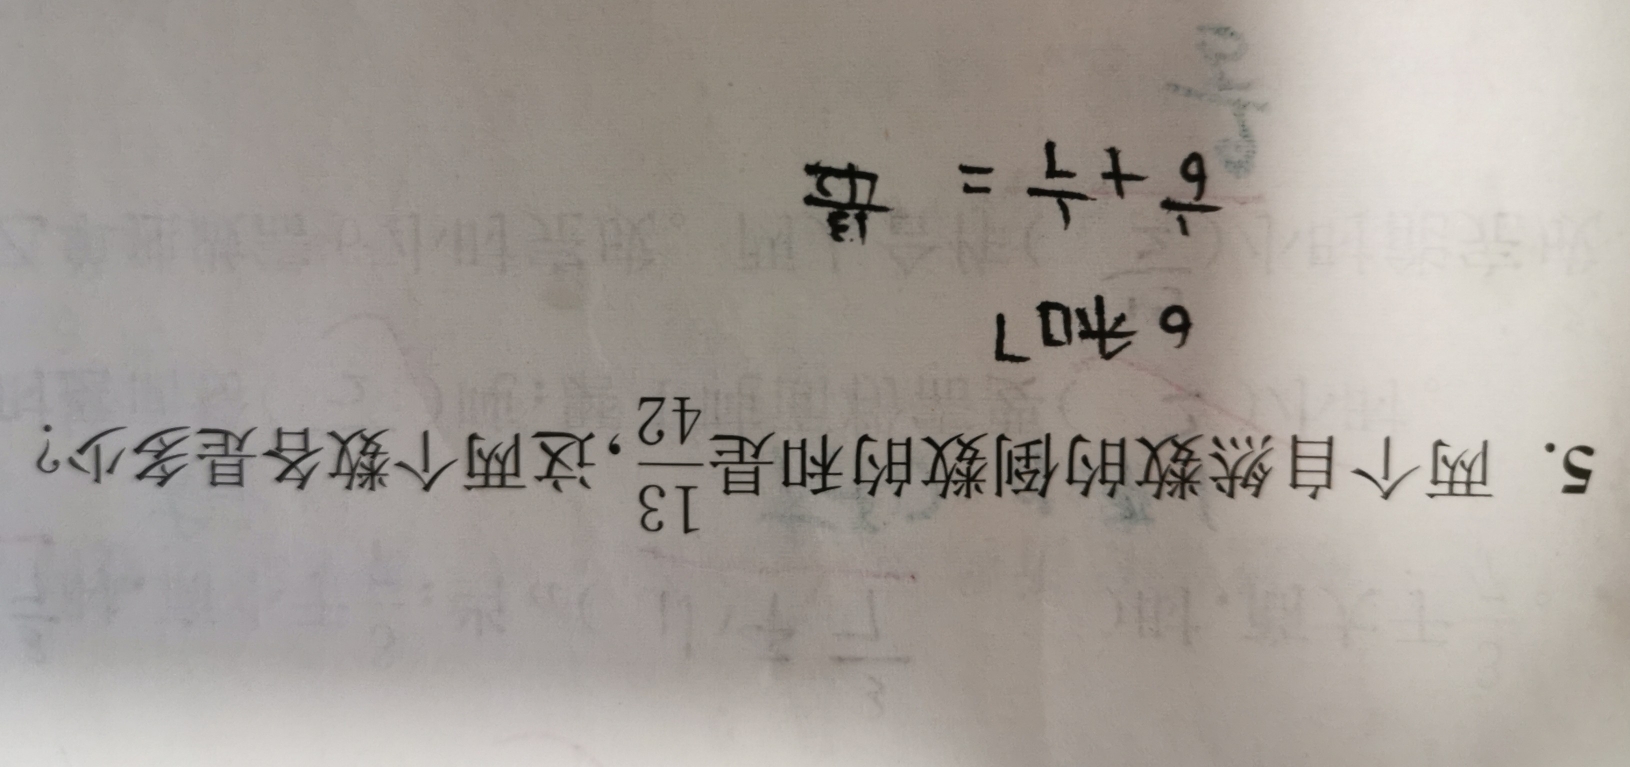 5. 两个自然数的倒数的和是13/42,这两个数各是多少?
6和7
1/6+1/7=13/42